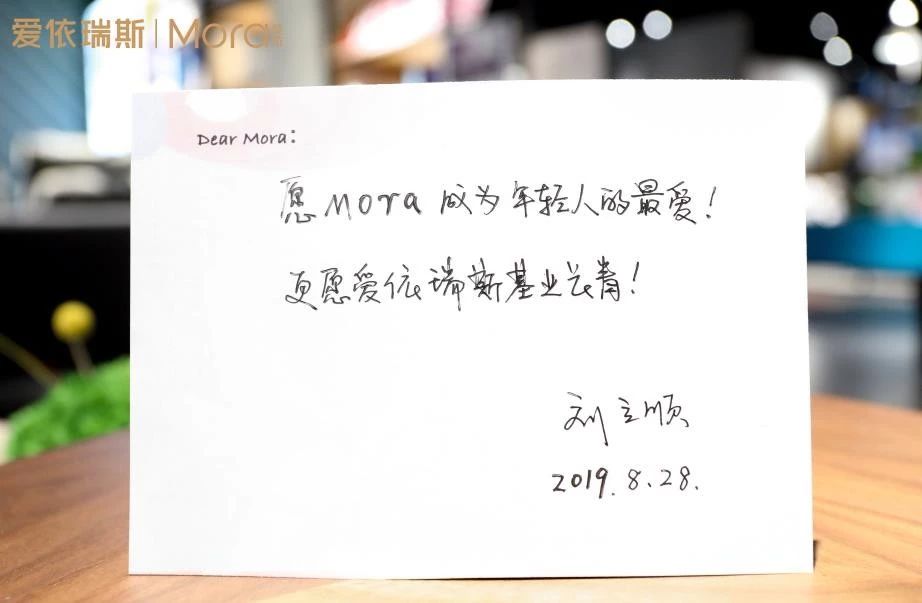 爱依瑞斯|Mora
Dear Mora:
愿Mora成为年轻人的最爱!
更愿爱依瑞斯基业长青!
刘立顺
2019.8.28.